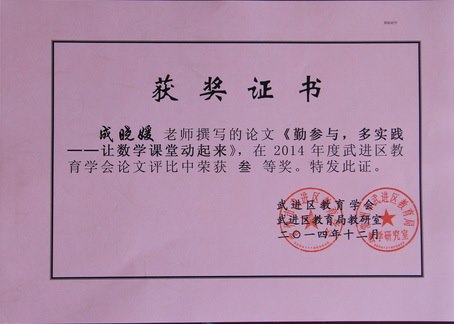 获奖证书
成晓媛 老师撰写的论文《勤参与，多实践
——让数学课堂动起来》，在2014年度武进区教
育学会论文评比中荣获 叁 等奖。特发此证。
武进区教育学会
武进区教育局教研室
二〇一四年十二月